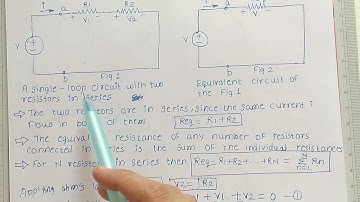 I a R1 R2
+ V1 - + V2 -
V
b
Fig 1
I a
V
V
b
Fig 2
A single-loop circuit with two
resistors in series
Equivalent circuit of
the Fig 1
⇒ The two resistors are in series, since the same current i
flows in both of them Req = R1 + R2
⇒ The equivalent resistance of any number of resistors
connected in series is the sum of the individual resistances
⇒ For N resistor in series then Req = R1 + R2 + ... + RN = Σ Rn
N
n=1
V2 = iR2
V1 + V2 = 0 — ①